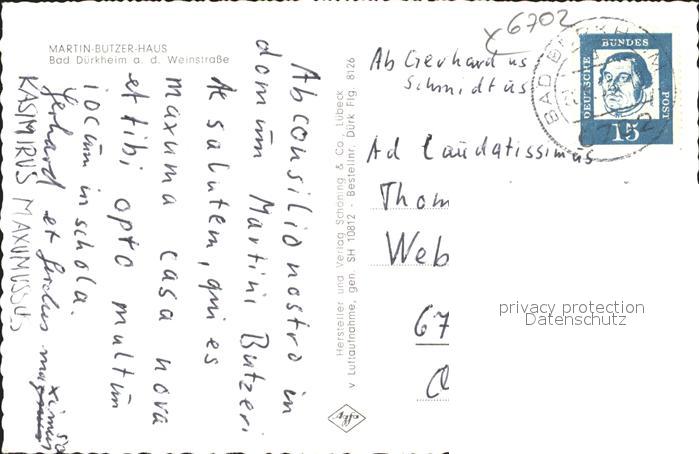 MARTIN-BUTZER-HAUS
Bad Dürkheim a. d. Weinstraße
Ab consilio nostro in
domum Martini Butzeri
te salutem, qui es
maxuma casa nova
et tibi opto multum
iocum in schola.
Gerhard et
KASIMIRUS MAXUMUSSUS
Hersteller und Verlag Schöning & Co., Lübeck
v Luftaufnahme, gen. SH 10812 - Bestellnr. Dürk Flg. 8126
x 6702
Ab Gerhardus
Schmidtus
BAD DÜRKHEIM
DEUTSCHE
BUNDES
POST
15
Ad Laudatissimus
Thom
Web
67
privacy protection
Datenschutz